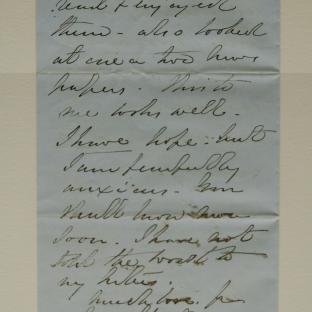 them - also looked
at one or two news
papers. This to
me looks well.
I have hope - but
I am fearfully
anxious. You
shall know more
soon. I have not
told the worst to
my
much love.